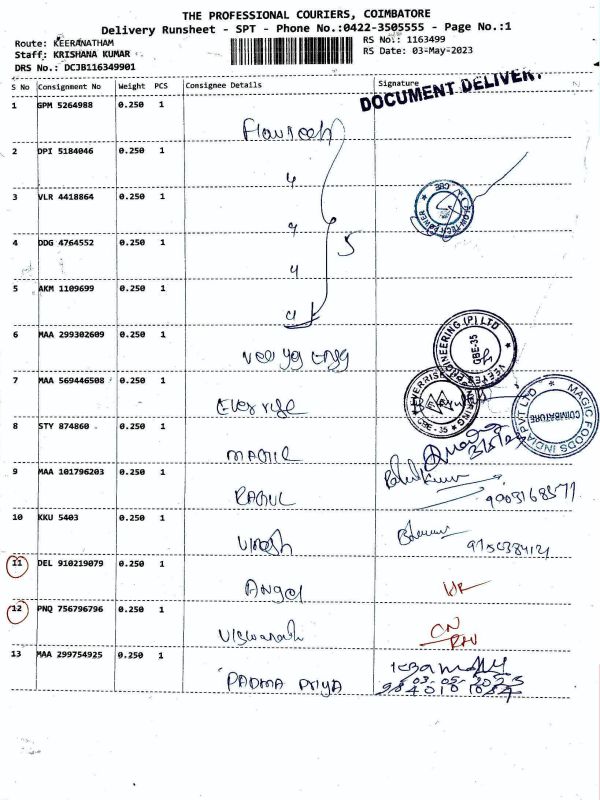 THE PROFESSIONAL COURIERS, COIMBATORE
Delivery Runsheet - SPT - Phone No.:0422-3505555 - Page No.:1
Route: KEERANATHAM RS No.: 1163499
Staff: KRISHANA KUMAR RS Date: 03-May-2023
DRS No.: DCJB116349901
S No Consignment No Weight PCS Consignee Details Signature
DOCUMENT DELIVERY
1 GPM 5264988 0.250 1
2 DPI 5184046 0.250 1
3 VLR 4418864 0.250 1
CBE
4 DDG 4764552 0.250 1
5
5 AKM 1109699 0.250 1
6 MAA 299302609 0.250 1
Vee yes Engg
ENGINEERING (P) LTD
CBE-35
7 MAA 569446508 0.250 1
Everrise
CBE - 35
8 STY 874860 0.250 1
MAGIC
MAGIC FOODS INDIA PVT LTD
COIMBATORE
9 MAA 101796203 0.250 1
RAHUL
9003168577
10 KKU 5403 0.250 1
Vignesh
11 DEL 910219079 0.250 1
Angel
12 PNQ 756796796 0.250 1
Viswanath
13 MAA 299754925 0.250 1
PADMA PRIYA
03-05-2023